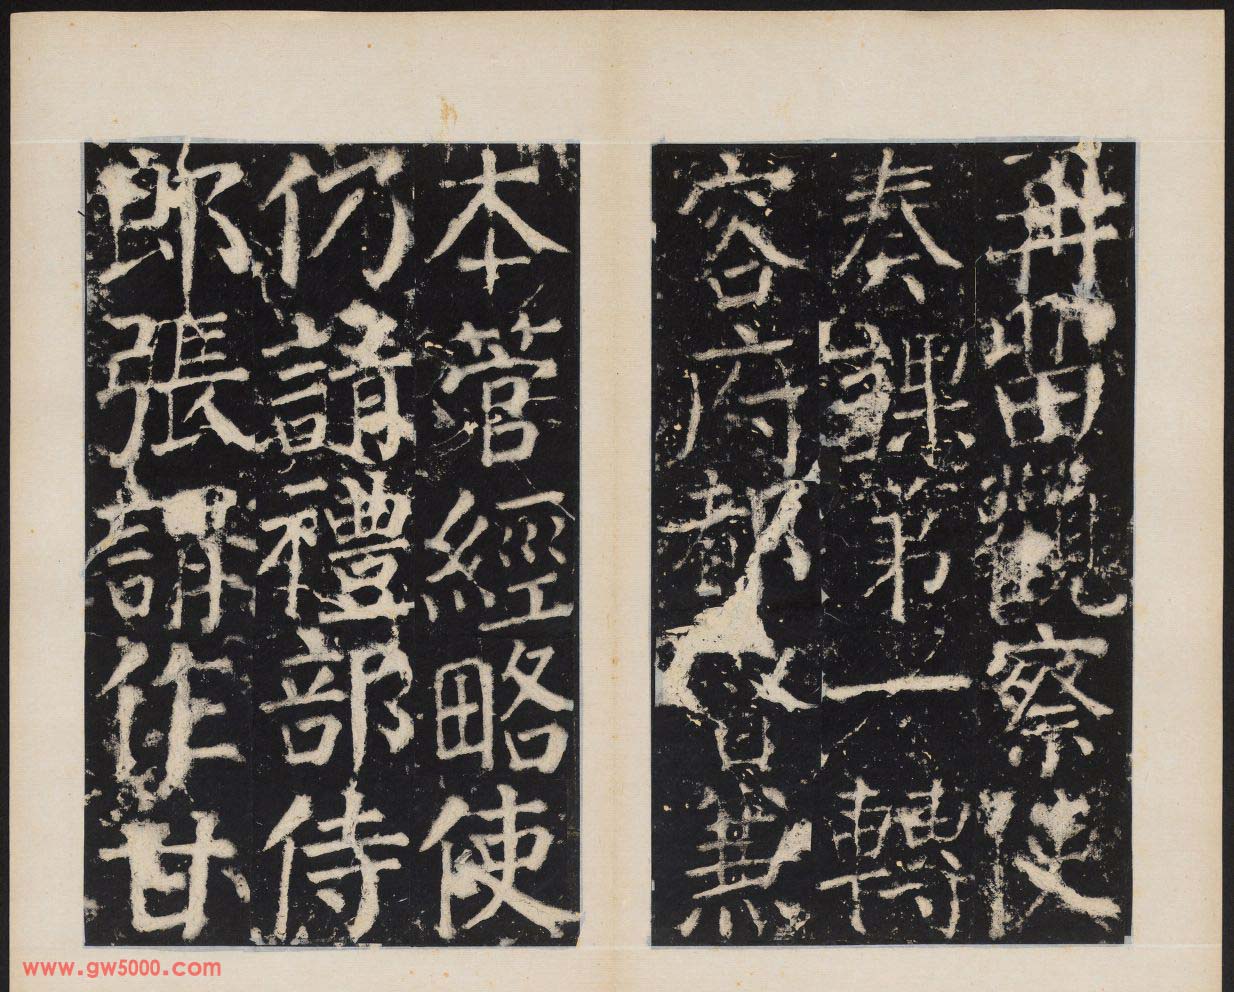 再留觀察使
奏課第一轉
容府都督兼
本管經略使
仍請禮部侍
郎張謂作甘
www.gw5000.com